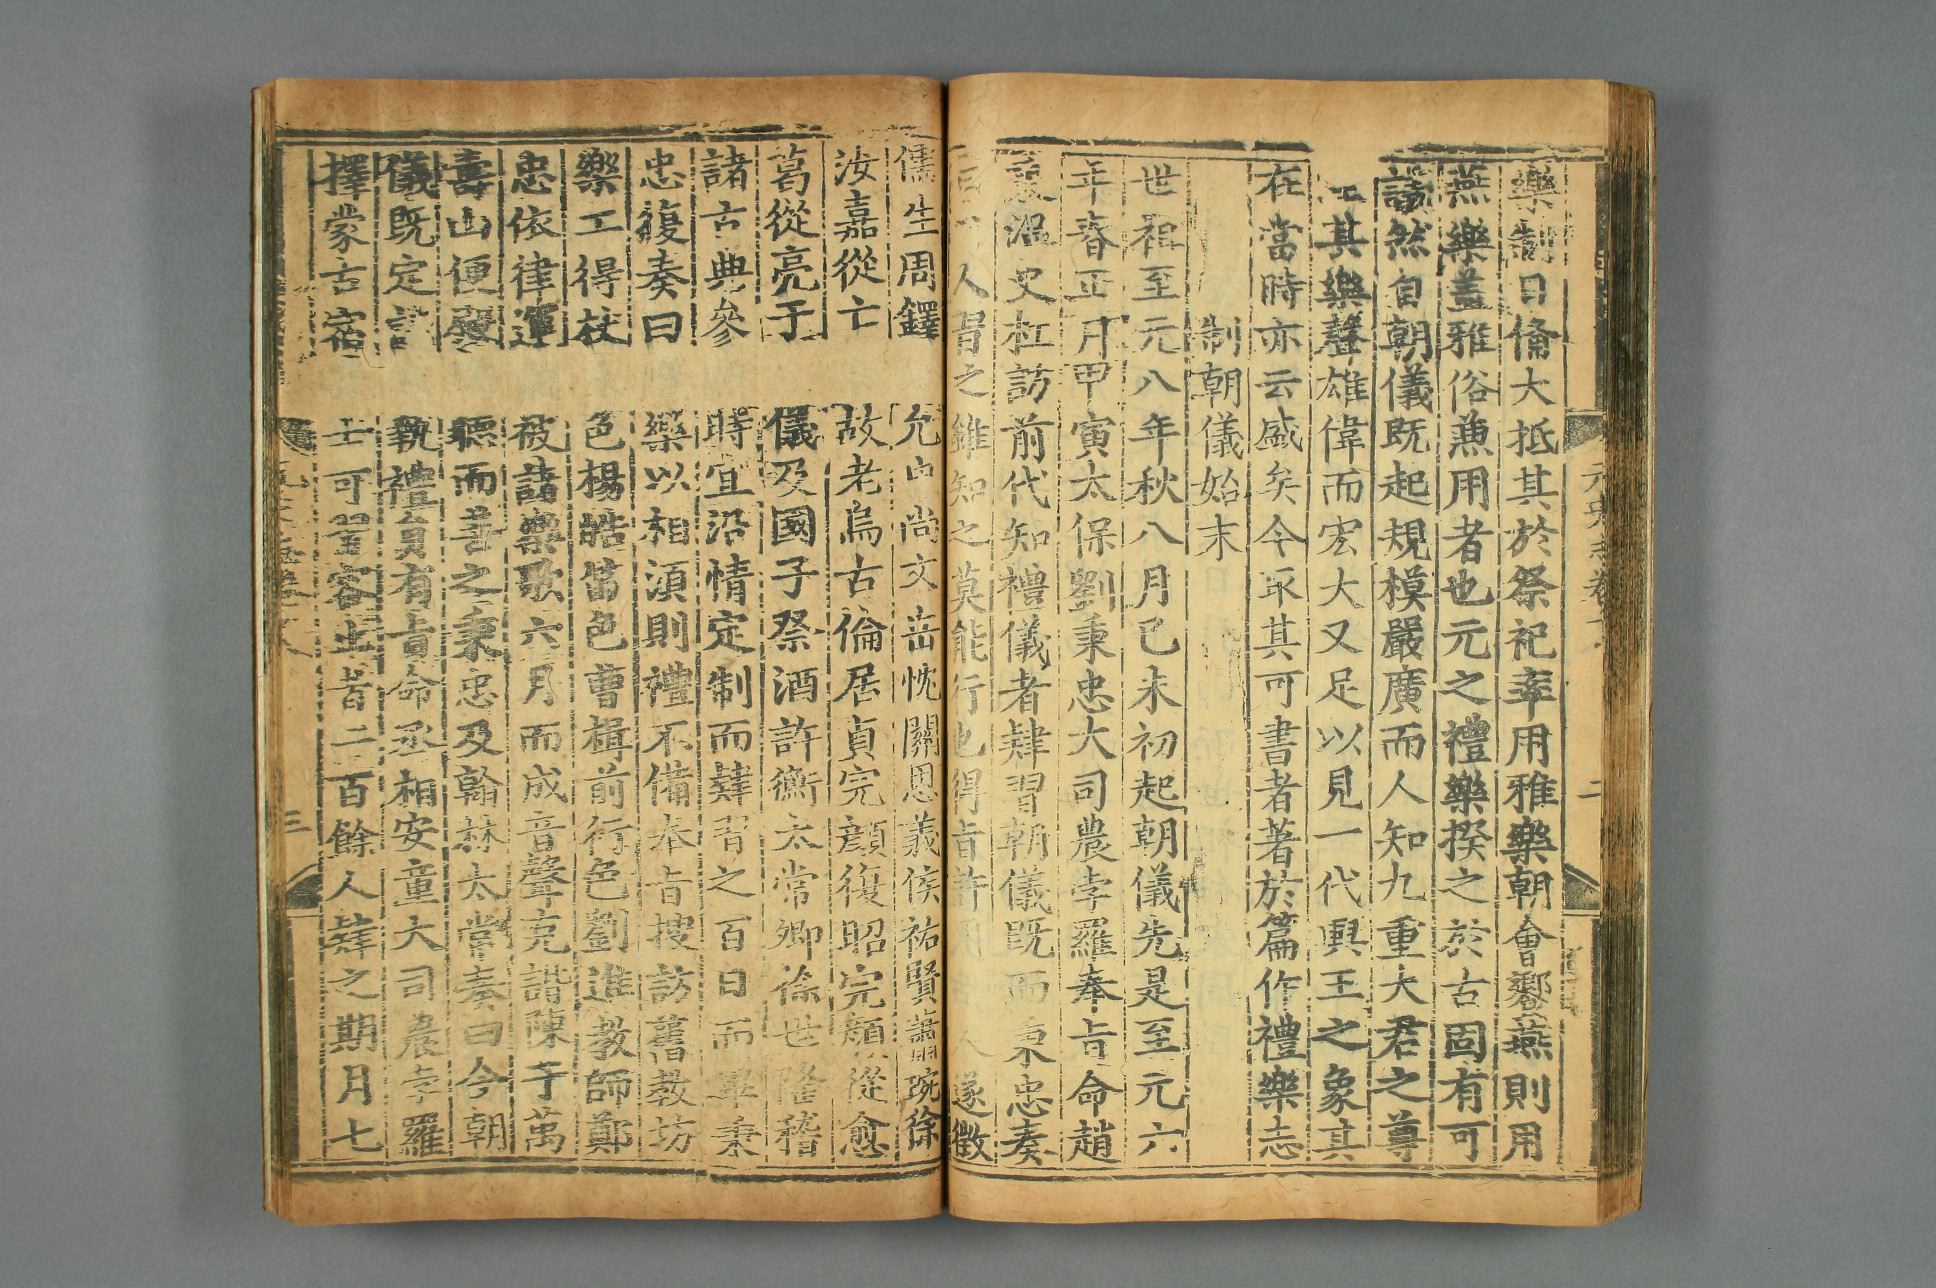 樂制日備大抵其於祭祀率用雅樂朝會饗燕則用
燕樂蓋雅俗兼用者也元之禮樂揆之於古固有可
議然自朝儀既起規模嚴廣而人知九重大君之尊
其樂聲雄偉而宏大又足以見一代興王之象其
在當時亦云盛矣今取其可書者著於篇作禮樂志
制朝儀始末
世祖至元八年秋八月己未初起朝儀先是至元六
年春正月甲寅太保劉秉忠大司農孛羅奉旨命趙
秉温史杠訪前代知禮儀者肄習朝儀既而秉忠奏
人習之雖知之莫能行也得旨許用 人遂徵
儒生周鐸
汝嘉從亡
葛從亮于
諸古典參
忠復奏曰
樂工得杖
忠依律運
壽山便殿
儀既定請
擇蒙古宿
允中尚文岳忱關思義侯祐賢蕭琬徐
故老烏古倫居貞完顔復昭完顔從愈
儀及國子祭酒許衡太常卿徐世隆稽
時宜沿情定制而肄習之百日而畢秉
樂以相須則禮不備奉旨搜訪舊教坊
色楊皓笛色曹楫前行色劉進教師鄭
被諸樂歌六月而成音聲克諧陳于萬
聽而善之秉忠及翰林太常奏曰今朝
執禮員有旨命丞相安童大司農孛羅
士可習容止者二百餘人肄之期月七
元史志卷
二
三